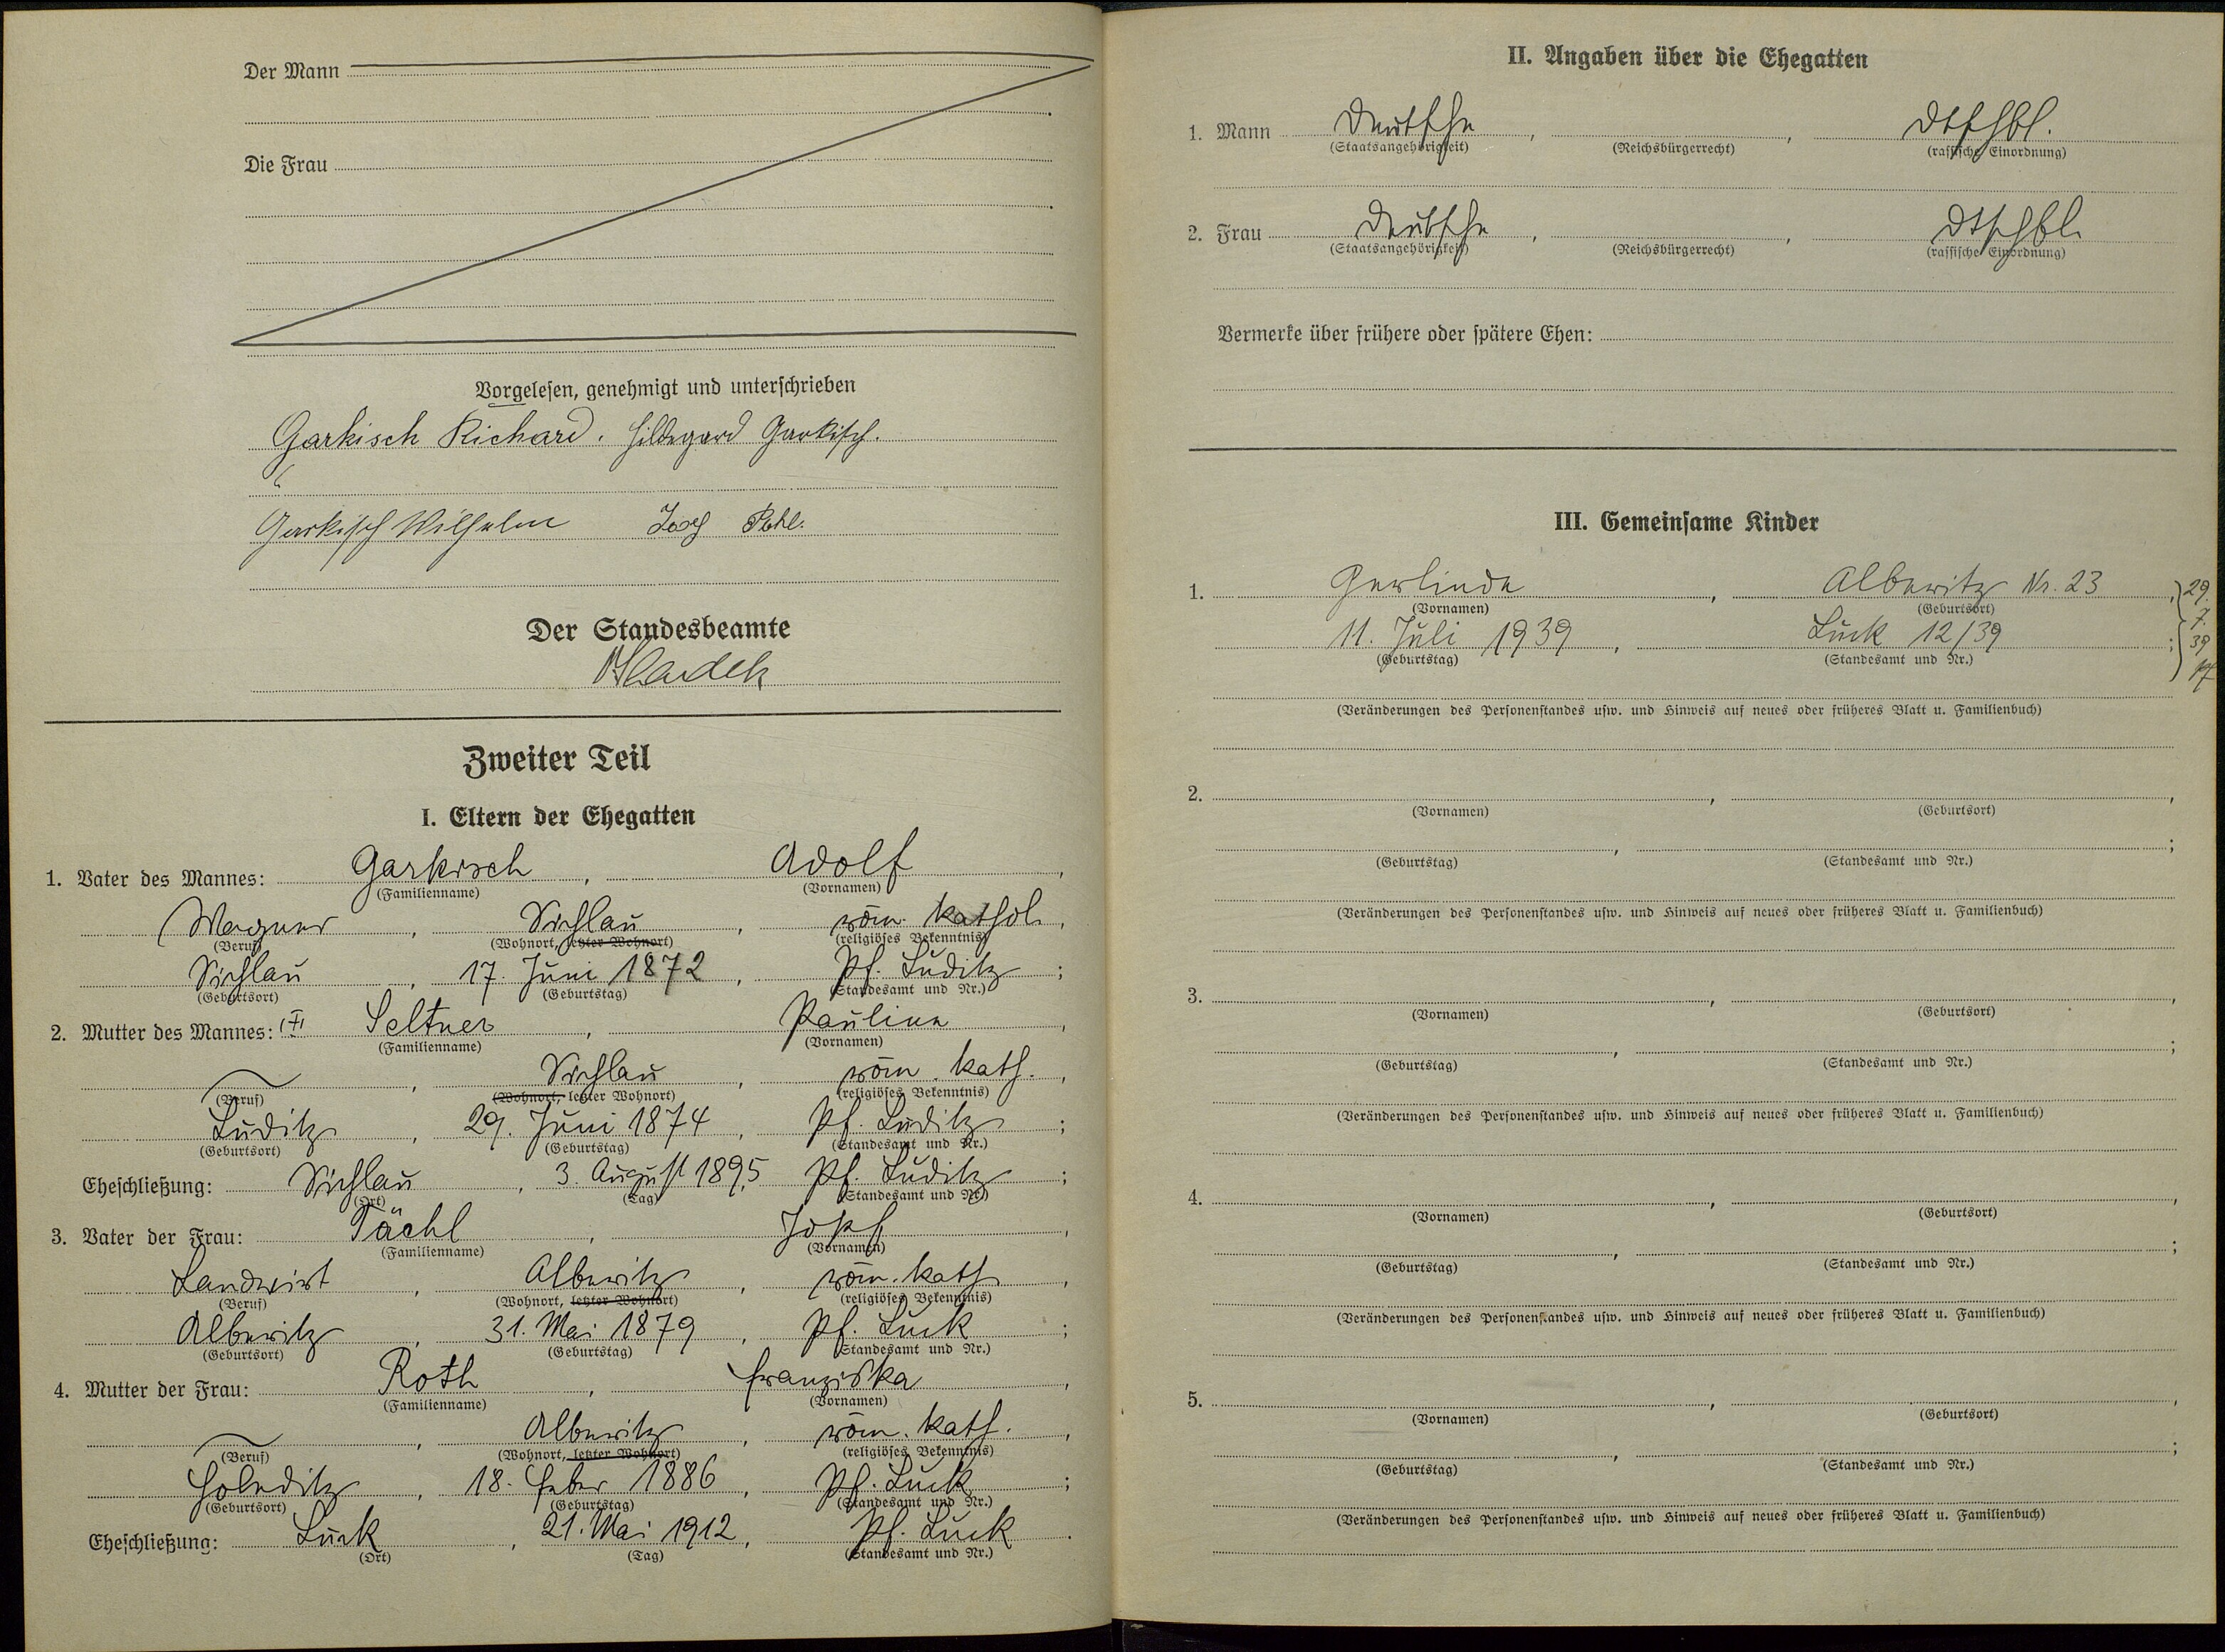 Der Mann
Die Frau
Vorgelesen, genehmigt und unterschrieben
Garkisch Richard. Hildegard Garkisch.
Garkisch Wilhelm Josef Pohl.
Der Standesbeamte
Zweiter Teil
I. Eltern der Ehegatten
1. Vater des Mannes: Garkisch, Adolf,
(Familienname) (Vornamen)
Wagner, Sichlau, röm. kathol.,
(Beruf) (Wohnort, letzter Wohnort) (religiöses Bekenntnis)
Sichlau, 17. Juni 1872, Pf. Luditz;
(Geburtsort) (Geburtstag) (Standesamt und Nr.)
2. Mutter des Mannes: (†) Seltner, Pauline,
(Familienname) (Vornamen)
, Sichlau, röm. kath.,
(Beruf) (Wohnort, letzter Wohnort) (religiöses Bekenntnis)
Luditz, 29. Juni 1874, Pf. Luditz;
(Geburtsort) (Geburtstag) (Standesamt und Nr.)
Eheschließung: Sichlau, 3. August 1895, Pf. Luditz;
(Ort) (Tag) (Standesamt und Nr.)
3. Vater der Frau: Tächl, Josef,
(Familienname) (Vornamen)
Landwirt, Alberitz, röm. kath.,
(Beruf) (Wohnort, letzter Wohnort) (religiöses Bekenntnis)
Alberitz, 31. Mai 1879, Pf. Luck;
(Geburtsort) (Geburtstag) (Standesamt und Nr.)
4. Mutter der Frau: Roth, Franziska,
(Familienname) (Vornamen)
, Alberitz, röm. kath.,
(Beruf) (Wohnort, letzter Wohnort) (religiöses Bekenntnis)
Holeditz, 18. Feber 1886, Pf. Luck;
(Geburtsort) (Geburtstag) (Standesamt und Nr.)
Eheschließung: Luck, 21. Mai 1912, Pf. Luck.
(Ort) (Tag) (Standesamt und Nr.)
II. Angaben über die Ehegatten
1. Mann Deutsche, , dtschbl.
(Staatsangehörigkeit) (Reichsbürgerrecht) (rassische Einordnung)
2. Frau Deutsche, , dtschbl.
(Staatsangehörigkeit) (Reichsbürgerrecht) (rassische Einordnung)
Vermerke über frühere oder spätere Ehen:
III. Gemeinsame Kinder
1. Gerlinde, Alberitz Nr. 23, 29.
(Vornamen) (Geburtsort) 7.
11. Juli 1939, Luck 12/39; 39
(Geburtstag) (Standesamt und Nr.)
(Veränderungen des Personenstandes usw. und Hinweis auf neues oder früheres Blatt u. Familienbuch)
2. , ,
(Vornamen) (Geburtsort)
, ;
(Geburtstag) (Standesamt und Nr.)
(Veränderungen des Personenstandes usw. und Hinweis auf neues oder früheres Blatt u. Familienbuch)
3. , ,
(Vornamen) (Geburtsort)
, ;
(Geburtstag) (Standesamt und Nr.)
(Veränderungen des Personenstandes usw. und Hinweis auf neues oder früheres Blatt u. Familienbuch)
4. , ,
(Vornamen) (Geburtsort)
, ;
(Geburtstag) (Standesamt und Nr.)
(Veränderungen des Personenstandes usw. und Hinweis auf neues oder früheres Blatt u. Familienbuch)
5. , ,
(Vornamen) (Geburtsort)
, ;
(Geburtstag) (Standesamt und Nr.)
(Veränderungen des Personenstandes usw. und Hinweis auf neues oder früheres Blatt u. Familienbuch)